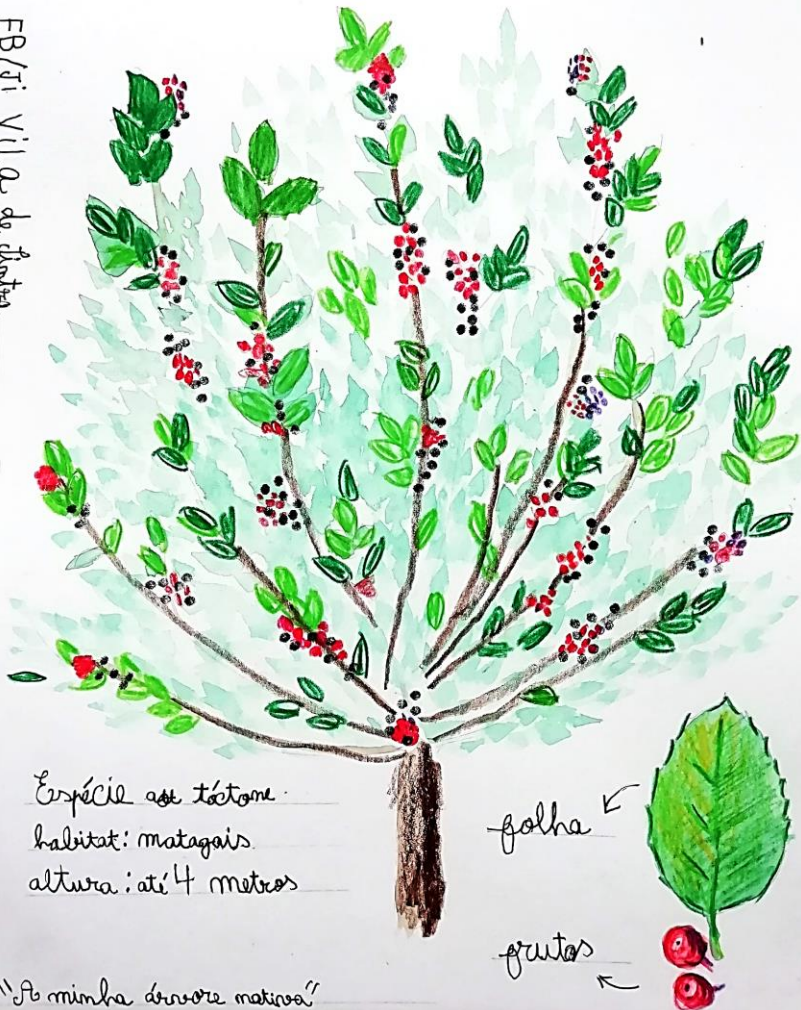 EB/Ji Vila de
Espécie au tóctone.
habitat: matagais
altura: até 4 metros
folha
frutos
"A minha árvore nativa"